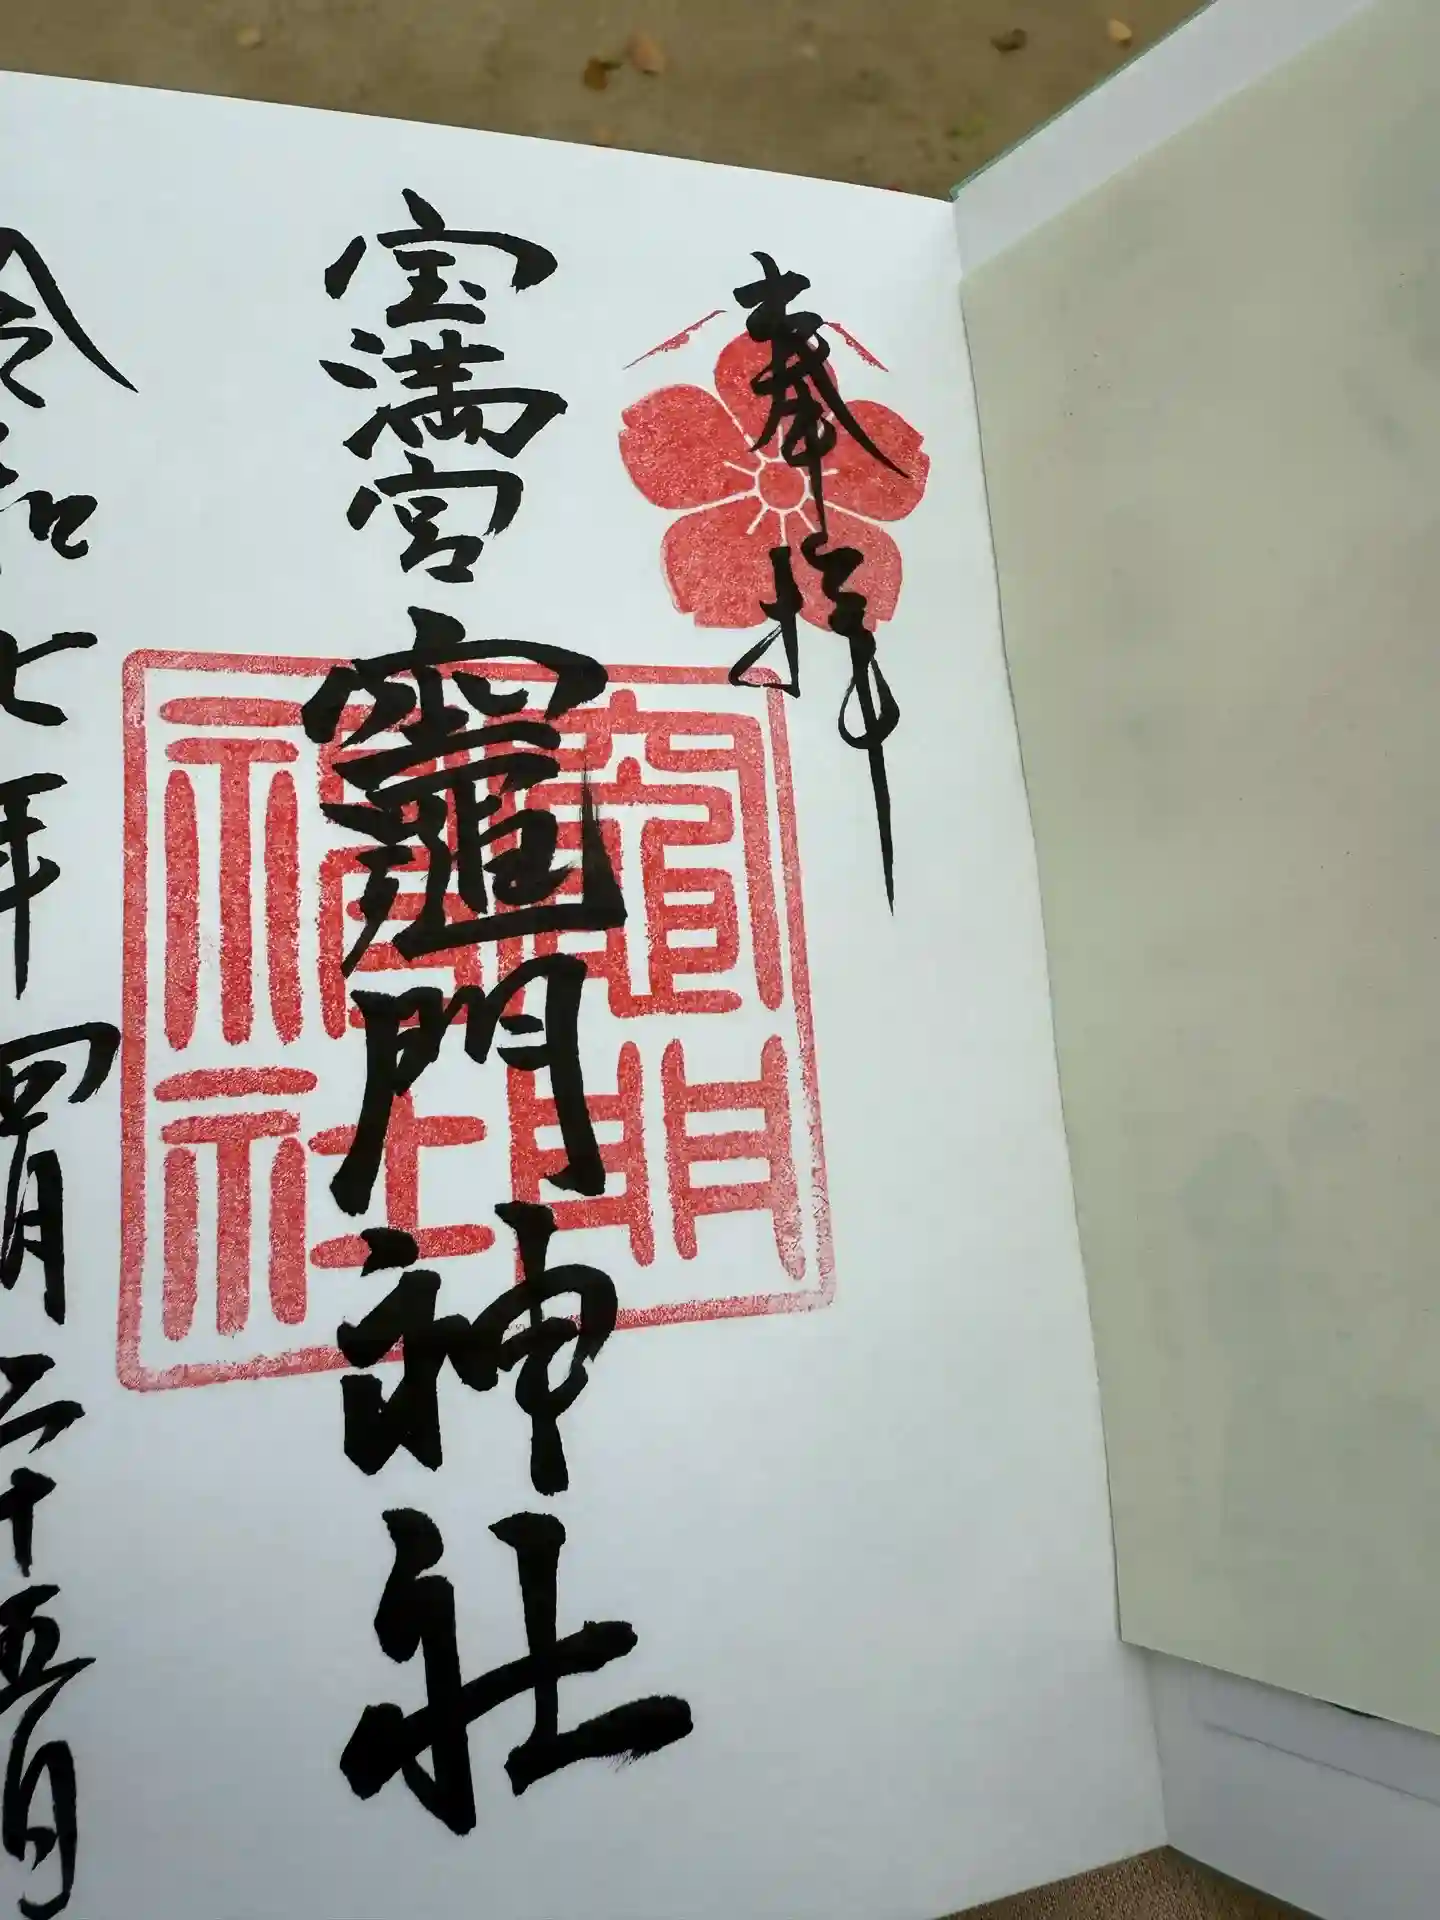 奉拝
宝満宮 竈門神社
竈門神社
令和七年四月二十五日